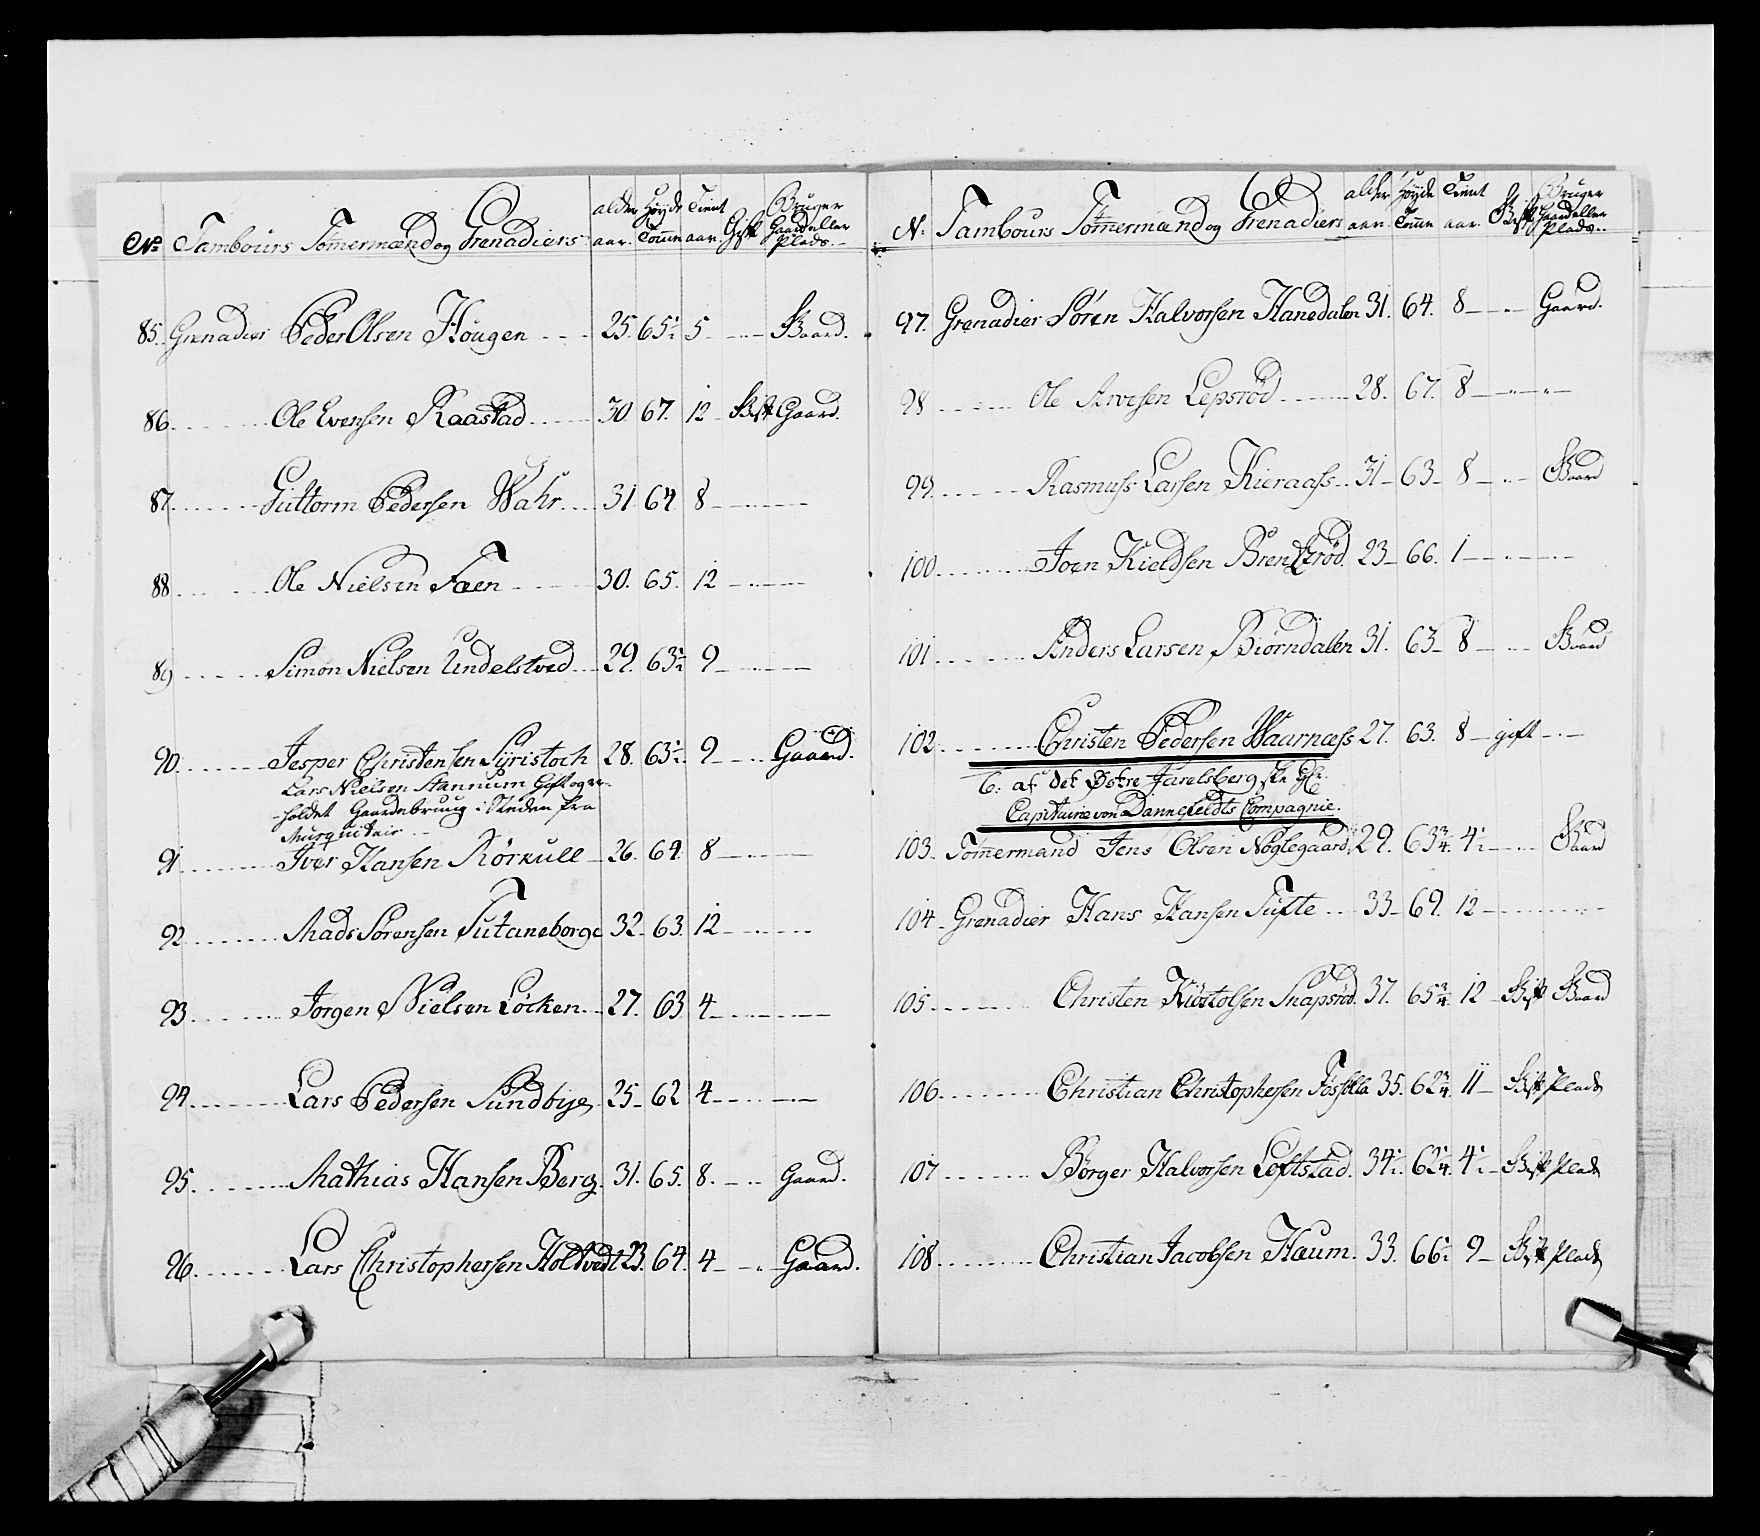 No Tambours Tømermænd og Grenadiers alder aar. Høyde Tomme Tient aar. Gift Bruger Gaard eller Plads.
85. Grenadier Peder Olsen Hougen 25. 65½ 5 Gaard.
86. Ole Evensen Raastad 30 67. 12 Gift Gaard.
87. Guttorm Pedersen Wahr 31 64 8
88. Ole Nielsen Faen 30. 65. 12
89. Simon Nielsen Undelstved 29. 63½ 9
90. Jesper Christensen Syristoch 28. 63½ 9 Gaard.
Lars Nielsen Stannum Gift og er-
holdet Gaardebrug i Steden fra
Musquitair
91. Iver Hansen Rörkull 26. 64 8
92. Mads Sörensen Sutaneborge 32. 63. 12
93. Jörgen Nielsen Löcken 27. 63 4
94. Lars Pedersen Sundbye 25 62 4
95. Mathias Hansen Berg 31. 65. 8. Gaard.
96. Lars Christophersen Holtvedt 23. 64. 4 Gaard.
N. Tambours Tømermænd og Grenadiers alder aar. Høyde Tomme Tient aar. Gift Bruger Gaard eller Plads.
97. Grenadier Sören Halvorsen Hanedalen 31. 64. 8 Gaard.
98 Ole Arvesen Lepsröd 28. 67. 8
99. Rasmuss Larsen Kieraass 31 63 8 Gaard
100. Joen Kieldsen Brentzröd 23 66. 1
101 Anders Larsen Biörndalen 31. 63 8 Gaard
102. Christen Pedersen Waarnæss 27. 63. 8 gift
6. af det Østre Jarelsbergske
Capitaine von Dannefeldts Compagnie.
103. Tømermand Jens Olsen Nöglegaard 29. 63¾ 4½ Gaard
104 Grenadier Hans Hansen Tufte 33 69. 12
105. Christen Snapsröd 37. 65¾ 12 Gift Gaard
106. Christian Christophersen 35. 62¾ 11 Gift Plads
107. Börger Halvorsen Loftstad 34½ 62¼ 4½ Gift Plads
108. Christian Jacobsen Haum 33. 66½ 9 Gift Plads